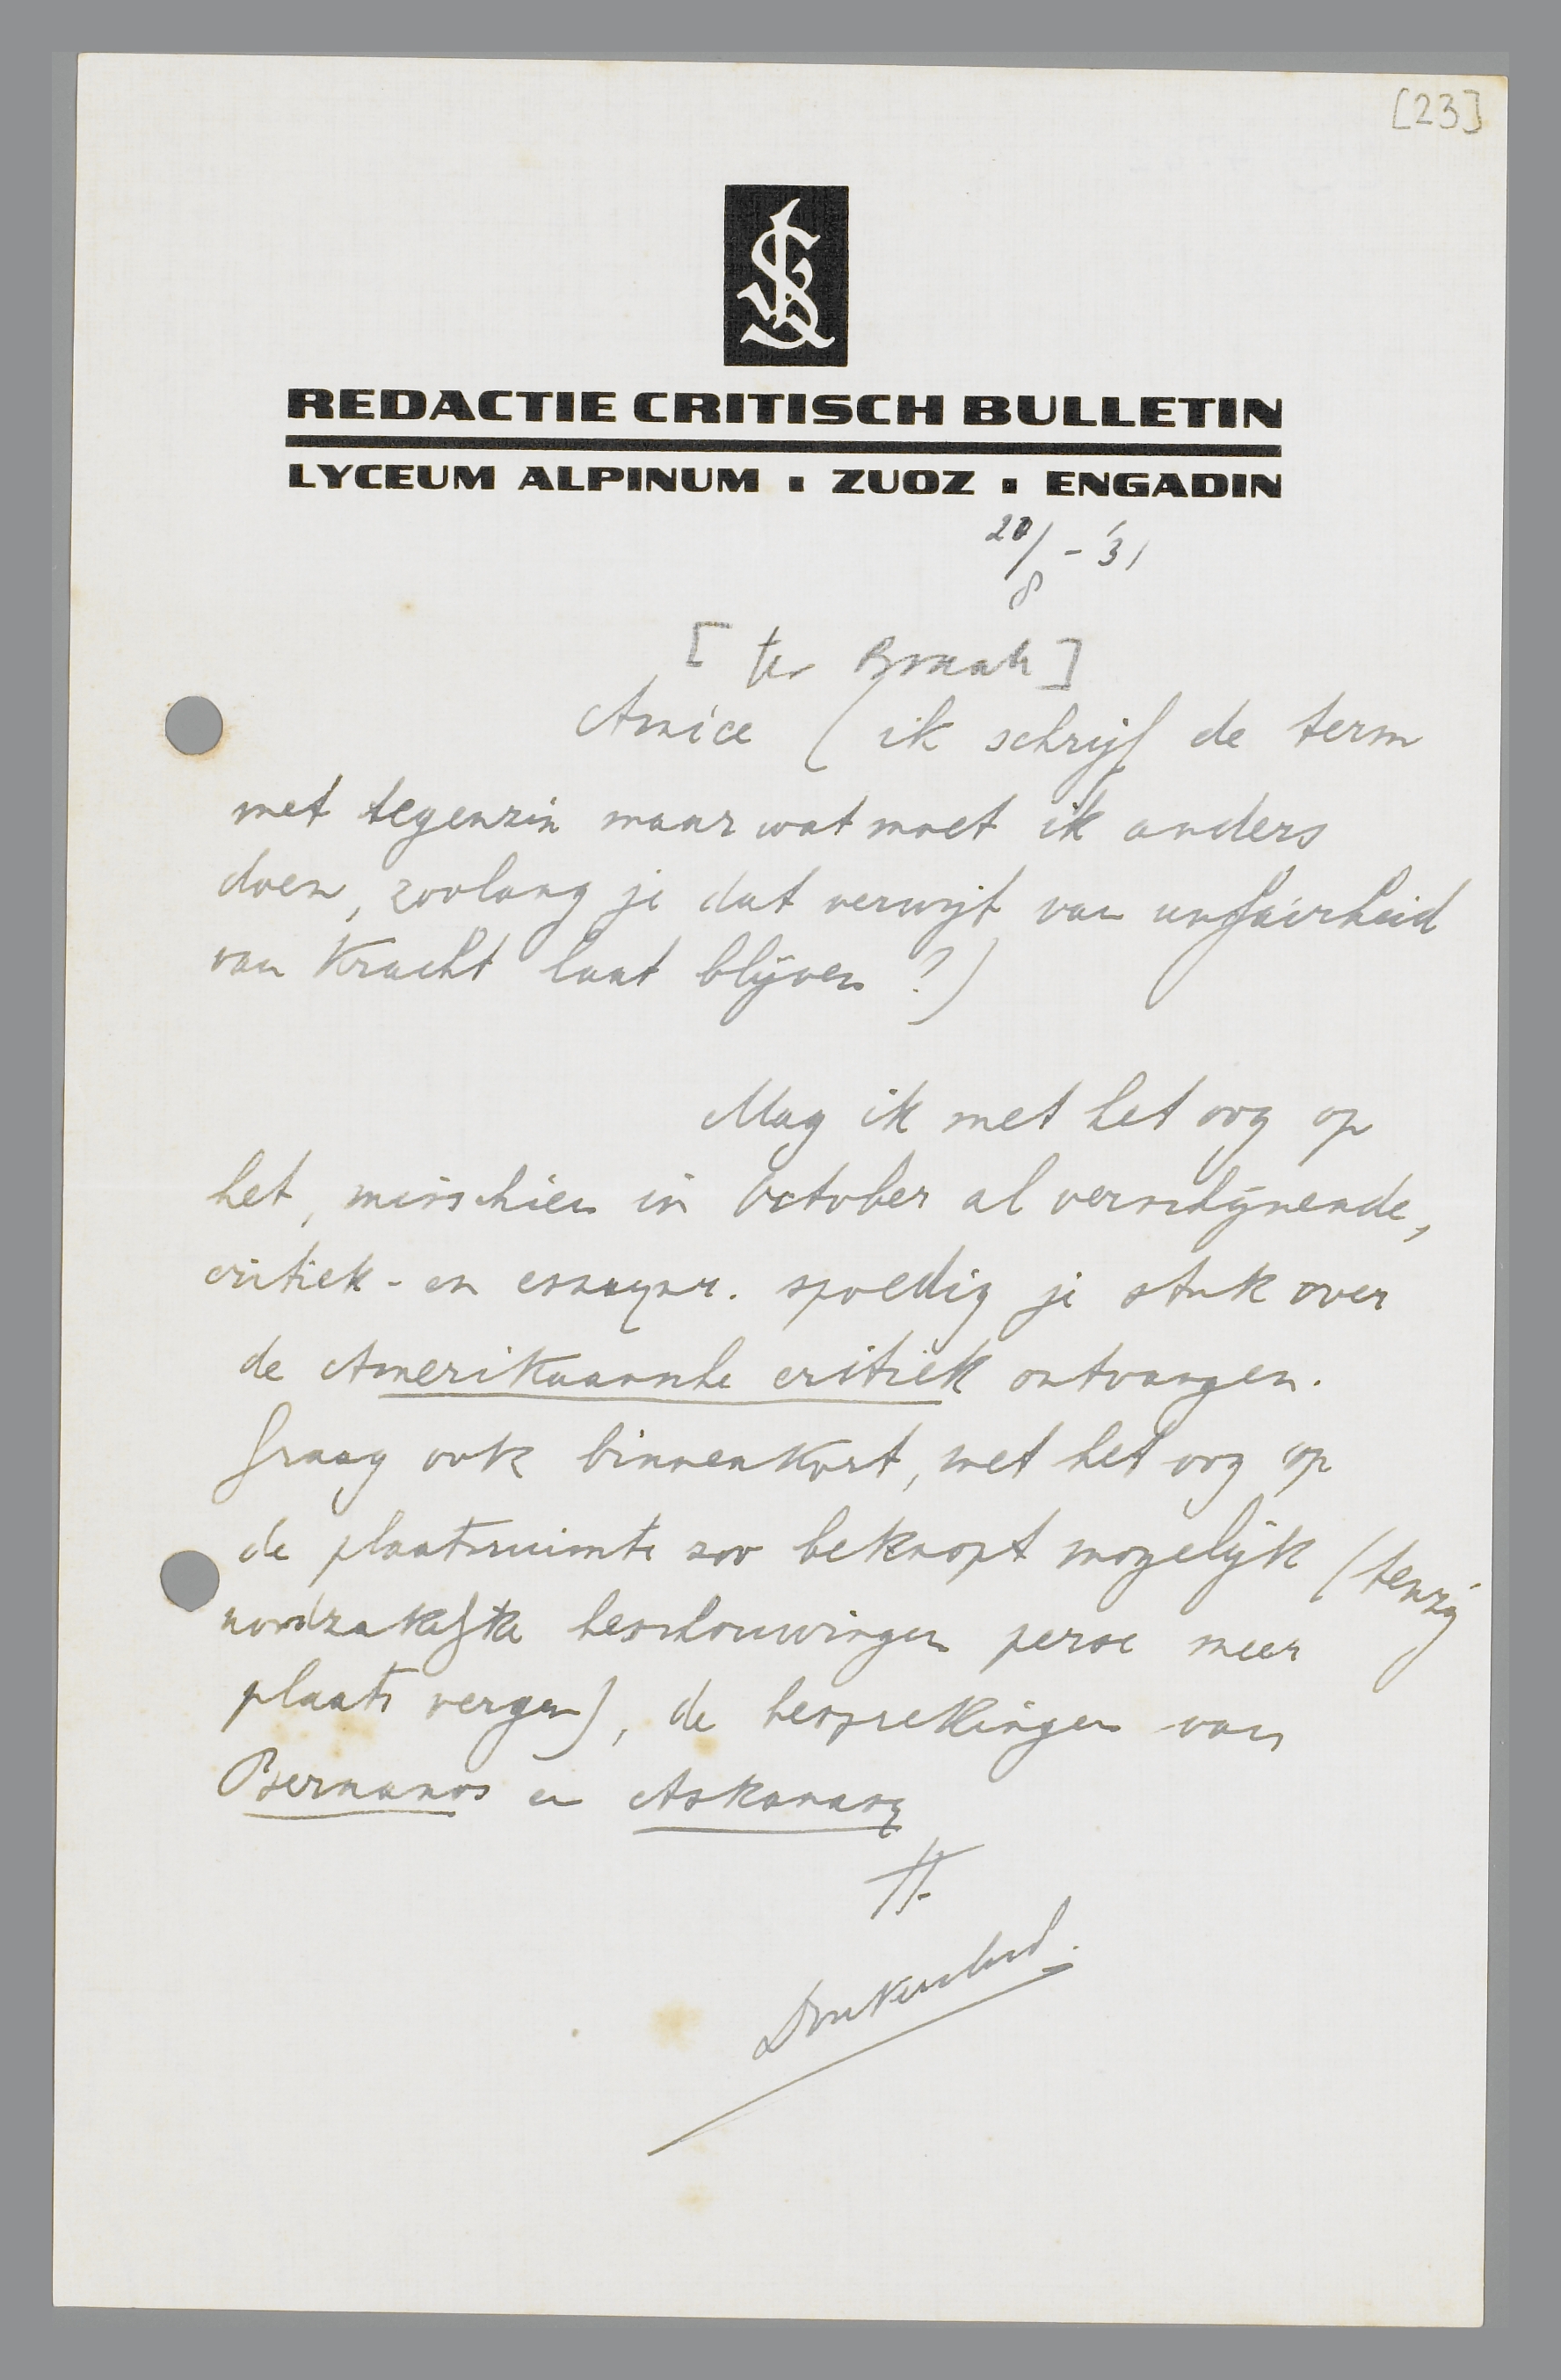 [23]
REDACTIE CRITISCH BULLETIN
LYCEUM ALPINUM ▪ ZUOZ ▪ ENGADIN
/8 - '31
[ter Braak]
Amice (ik schrijf de term
met tegenzin maar wat moet ik anders
doen, zoolang je dat verwijt van unfairheid
van kracht laat blijven?)
Mag ik met het oog op
het, misschien in October al verschijnende,
critiek- en essaynr. spoedig je stuk over
de Amerikaansche critiek ontvangen.
Graag ook binnenkort, met het oog op
de plaatsruimte zoo beknopt mogelijk (tenzij
noodzakelijke beschouwingen perse meer
plaats vergen), de besprekingen van
Bernanos en Askanasy
tt.
Donkersloot.